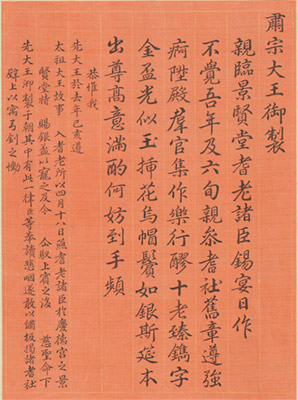 肅宗大王御製
親臨景賢堂耆老諸臣錫宴日作
不覺吾年及六旬親參耆社舊章遵強
疴陞殿羣官集作樂行醪十老臻鐫字
金盃光似玉揷花烏帽鬢如銀斯筵本
出尊高意滿酌何妨到手頻
恭惟我
先大王於去年己亥遵
太祖大王故事 入耆老所以四月十八日 召耆老諸臣於慶德宮之景
賢堂特 賜銀盃以寵之及今 上賓之後 慈聖命下
先大王御製于朝其中有此一律臣等奉讀悲咽遂敢以鏽板揭諸耆社
壁上以寓弓劍之慟